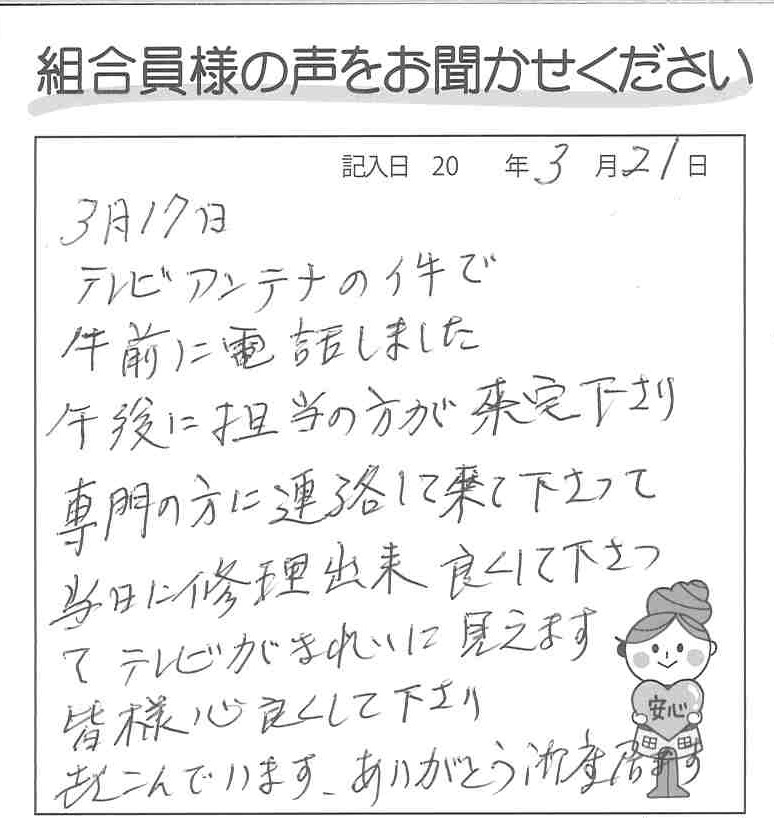 組合員様の声をお聞かせください
記入日 20 年 3 月 21 日
3月17日
テレビアンテナの件で
午前に電話しました
午後に担当の方が来宅下さり
専門の方に連絡して来て下さって
当日に修理出来良くして下さっ
てテレビがきれいに見えます
皆様心良くして下さり
よろこんでいます、ありがとう御座居ます
安心